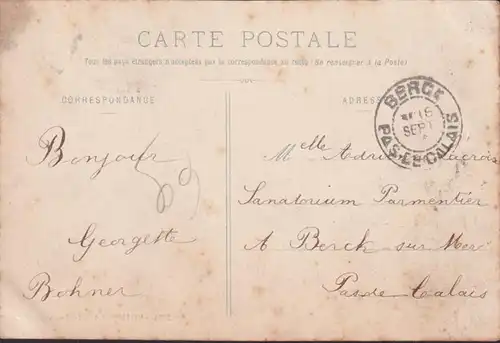 CARTE POSTALE
Tous les pays étrangers n'acceptent pas la correspondance au recto (Se renseigner à la Poste)
CORRESPONDANCE
ADRESSE
BERCK
16
SEPT
PAS-DE-CALAIS
Bonjour
Georgette
Bohner
Melle
Sanatorium Parmentier
A Berck sur Mer
Pas de Calais